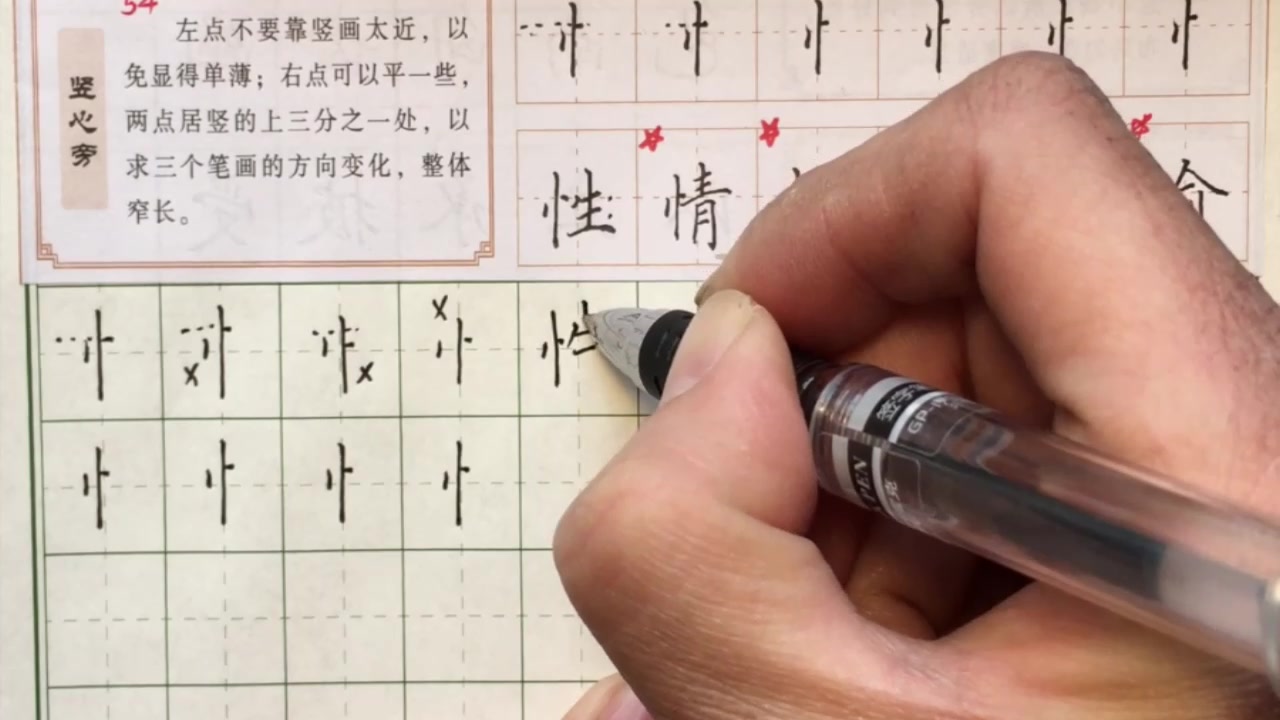 54
左点不要靠竖画太近，以
免显得单薄；右点可以平一些，
两点居竖的上三分之一处，以
求三个笔画的方向变化，整体
窄长。
竖心旁
忄 忄 忄 忄 忄 忄
性 情
忄 忄 忄 忄
x x x
忄 忄 忄 忄
签字
GP-
PEN
克